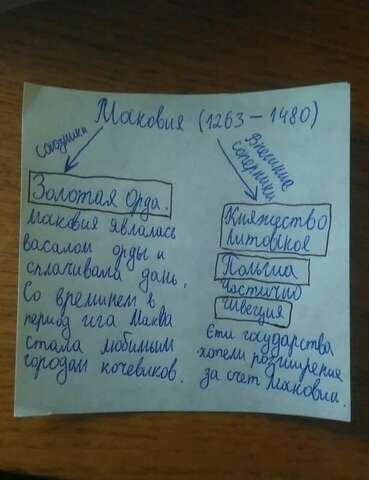 Маковия (1263 – 1480)
Союзники
Внешние
соперники
Золотая Орда.
Маковия являлась
васалом орды и
сплачивала дань,
Со временем в
период ига Маква
стала любимым
городом кочевиков.
Княжество
Литовское
Польша
частично
Швеция
Эти государства
хотели розширение
за счет Маковии.